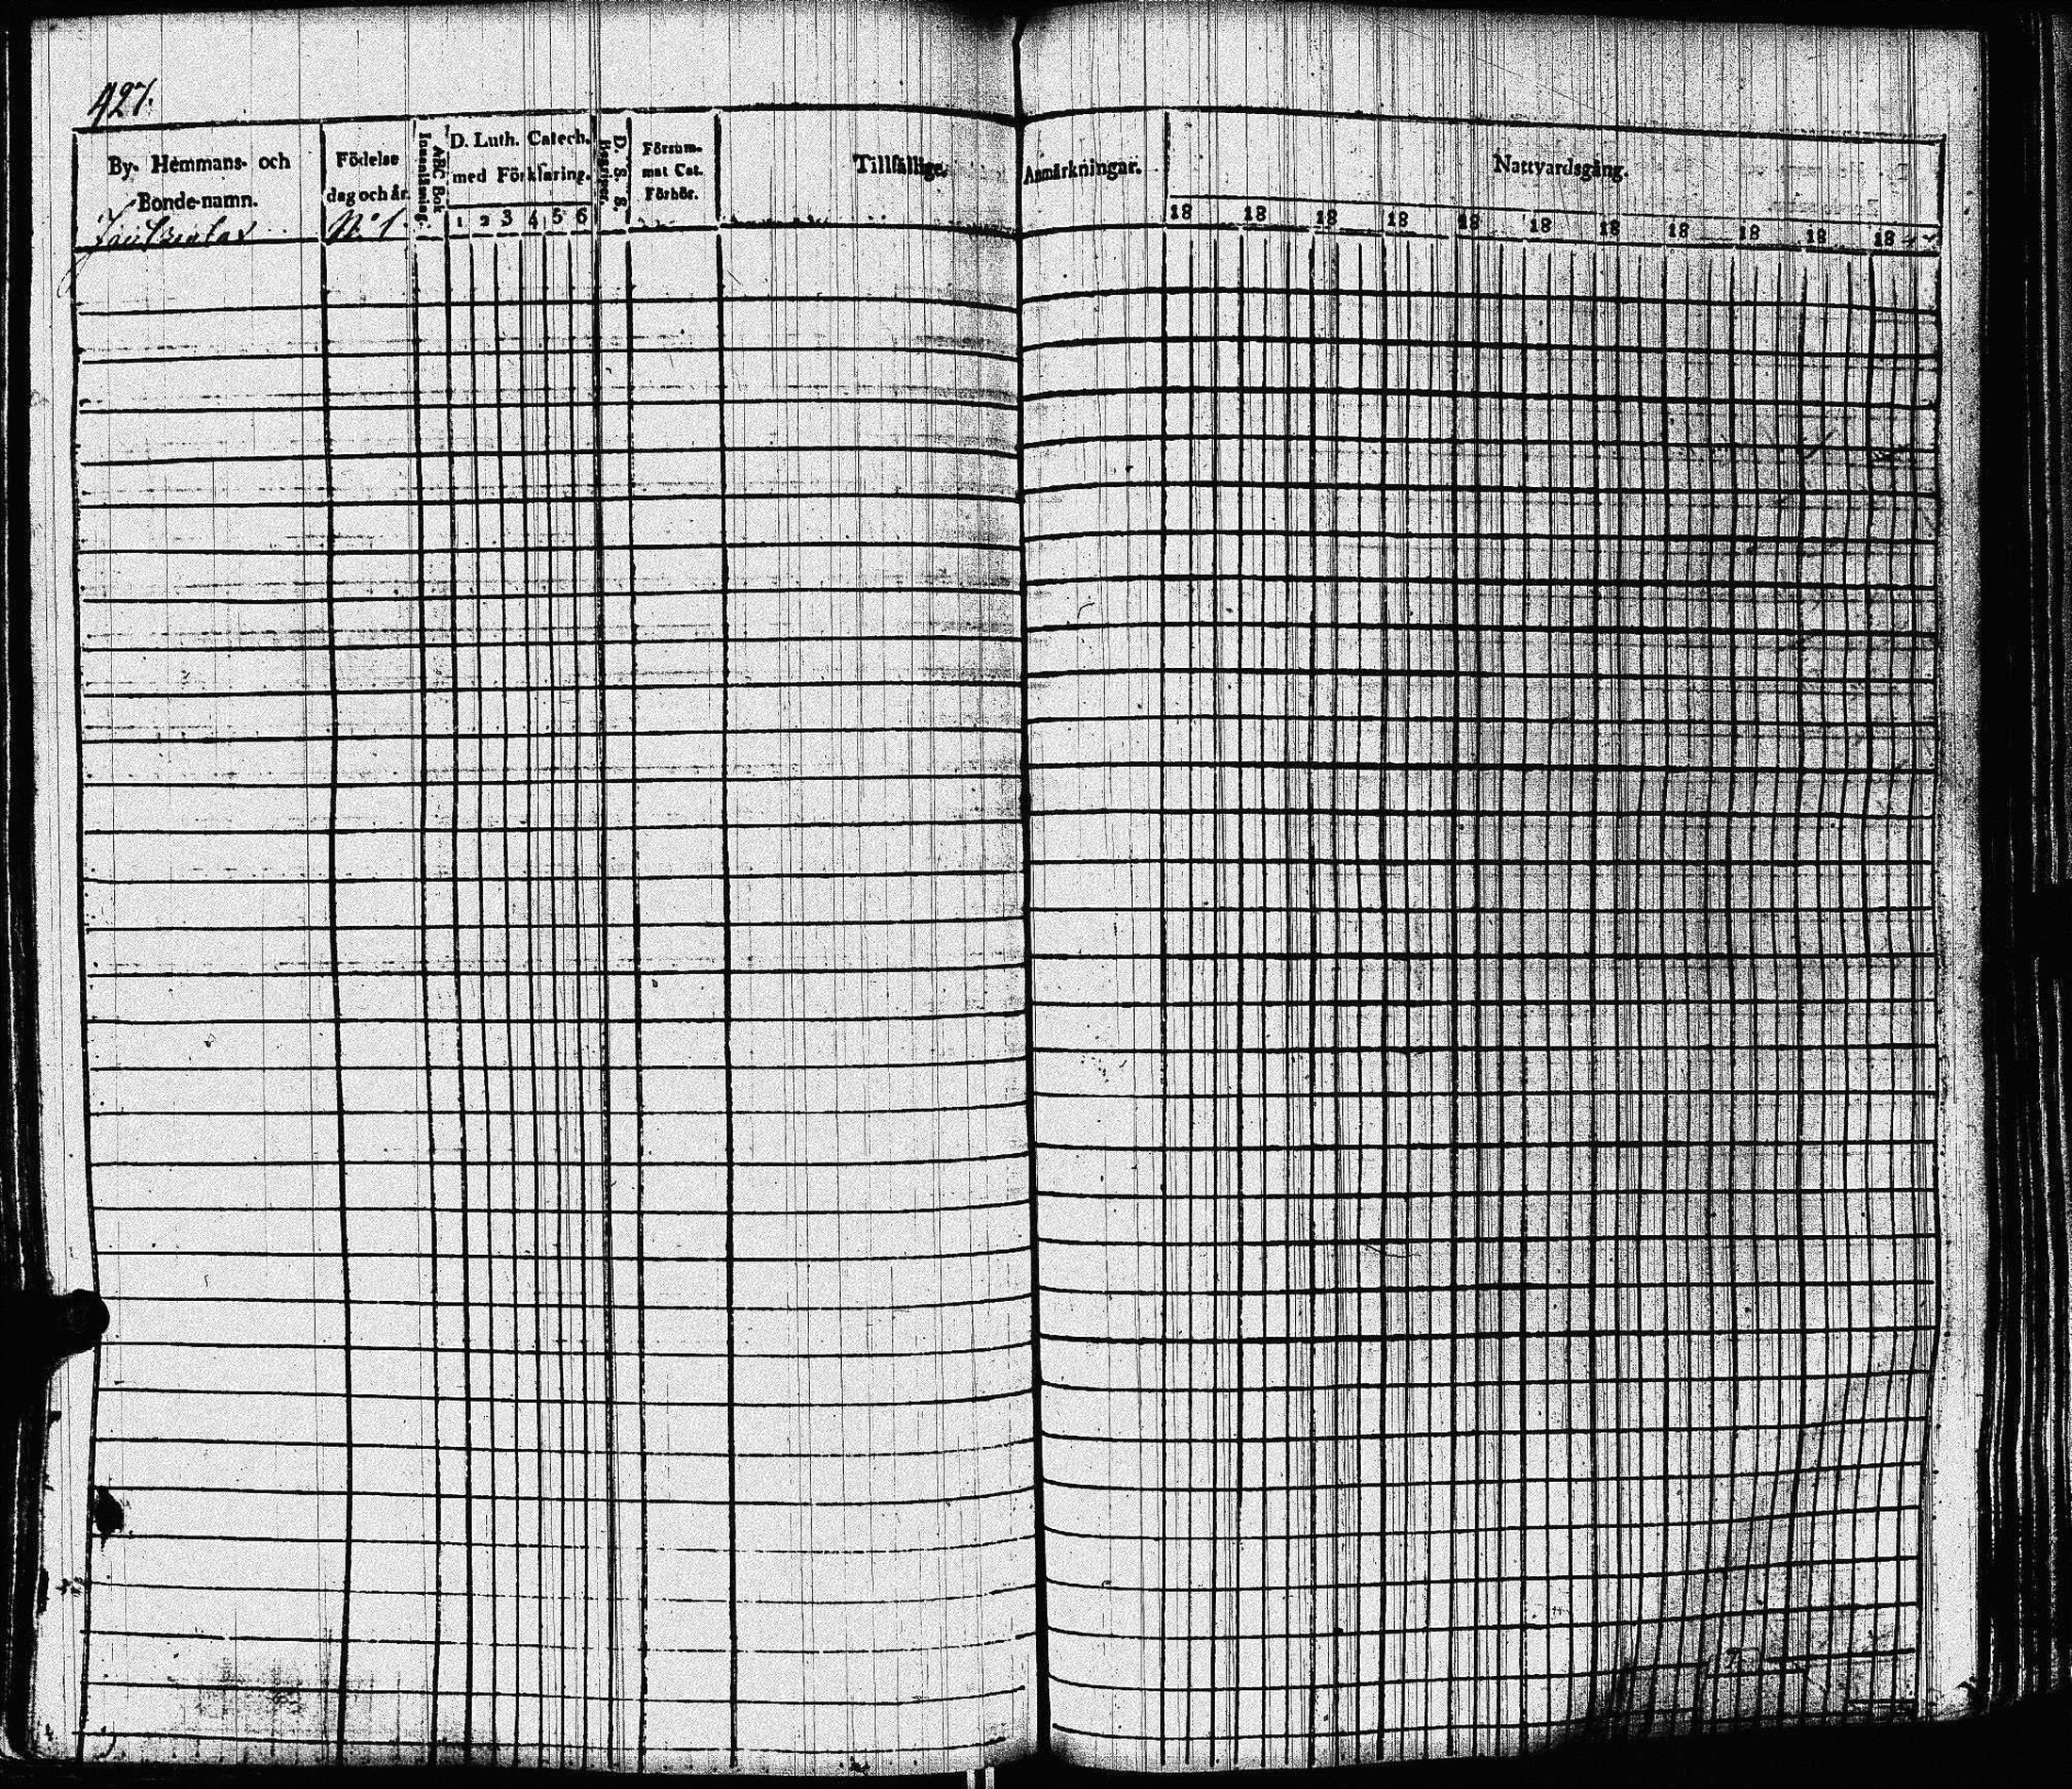 427.
By- Hemmans- och Bonde-namn.
Födelse dag och år.
Innanläsning.
ABC Bok
D. Luth. Catech. med Förklaring.
1 2 3 4 5 6
D. S. S. Begripet.
Försummat Cat. Förhör.
Tillfällige Anmärkningar.
Nattvardsgång.
18 18 18 18 18 18 18 18 18 18 18
N:o 1.